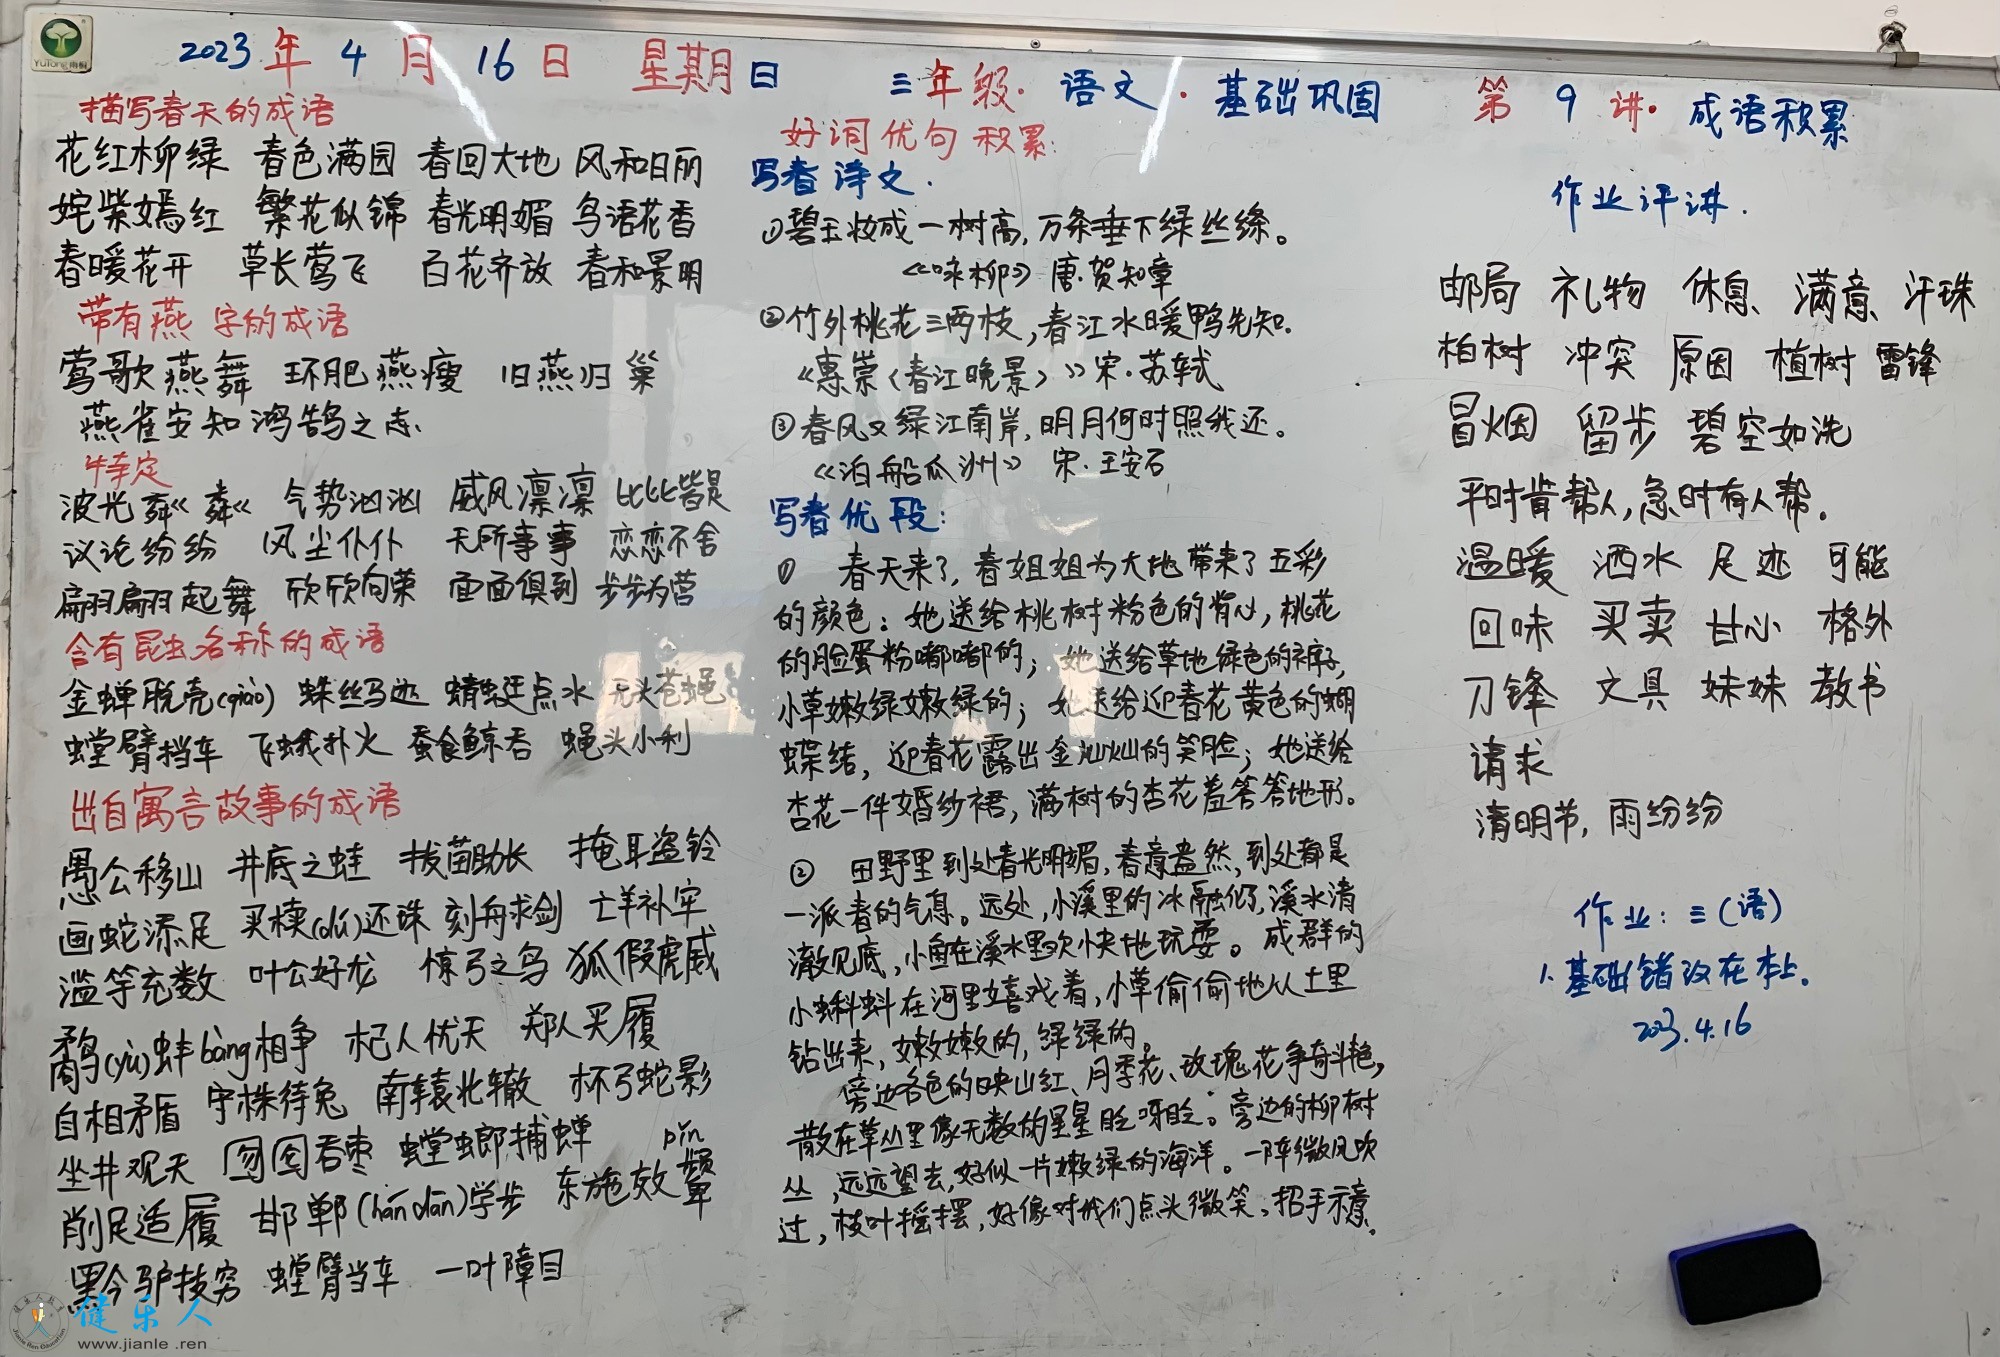 2023年4月16日 星期日 三年级·语文·基础巩固 第9讲·成语积累
描写春天的成语
花红柳绿 春色满园 春回大地 风和日丽
姹紫嫣红 繁花似锦 春光明媚 鸟语花香
春暖花开 草长莺飞 百花齐放 春和景明
带有燕字的成语
莺歌燕舞 环肥燕瘦 旧燕归巢
燕雀安知鸿鹄之志
特定
波光粼粼 气势汹汹 威风凛凛 比比皆是
议论纷纷 风尘仆仆 无所事事 恋恋不舍
翩翩起舞 欣欣向荣 面面俱到 步步为营
含有昆虫名称的成语
金蝉脱壳(qiào) 蛛丝马迹 蜻蜓点水 无头苍蝇
螳臂挡车 飞蛾扑火 蚕食鲸吞 蝇头小利
出自寓言故事的成语
愚公移山 井底之蛙 拔苗助长 掩耳盗铃
画蛇添足 买椟(dú)还珠 刻舟求剑 亡羊补牢
滥竽充数 叶公好龙 惊弓之鸟 狐假虎威
鹬(yù)蚌bàng相争 杞人忧天 郑人买履
自相矛盾 守株待兔 南辕北辙 杯弓蛇影
坐井观天 囫囵吞枣 螳螂捕蝉 pín
削足适履 邯郸(hán dān)学步 东施效颦
黔驴技穷 螳臂当车 一叶障目
好词优句积累:
写春诗文.
①碧玉妆成一树高,万条垂下绿丝绦。
《咏柳》唐·贺知章
②竹外桃花三两枝,春江水暖鸭先知.
《惠崇〈春江晚景〉》宋·苏轼
③春风又绿江南岸,明月何时照我还。
《泊船瓜洲》 宋·王安石
写春优段:
① 春天来了,春姐姐为大地带来了五彩
的颜色:她送给桃树粉色的背心,桃花
的脸蛋粉嘟嘟的;她送给草地绿色的裤子,
小草嫩绿嫩绿的;她送给迎春花黄色的蝴
蝶结,迎春花露出金灿灿的笑脸;她送给
杏花一件婚纱裙,满树的杏花羞答答地形。
② 田野里到处春光明媚,春意盎然,到处都是
一派春的气息。远处,小溪里的冰融化了,溪水清
澈见底,小鱼在溪水里欢快地玩耍。成群的
小蝌蚪在河里嬉戏着,小草偷偷地从土里
钻出来,嫩嫩的,绿绿的。
旁边各色的映山红、月季花、玫瑰花争奇斗艳,
散在草丛里像无数的星星眨呀眨。旁边的柳树
丛,远远望去,好似一片嫩绿的海洋。一阵微风吹
过,枝叶摇摆,好像对我们点头微笑,招手示意.
作业评讲.
邮局 礼物 休息 满意 汗珠
柏树 冲突 原因 植树 雷锋
冒烟 留步 碧空如洗
平时肯帮人,急时有人帮.
温暖 洒水 足迹 可能
回味 买卖 甘心 格外
刀锋 文具 妹妹 教书
请求
清明节,雨纷纷
作业:三(语)
1.基础错改在本上。
2023.4.16
健乐人
www.jianle.ren